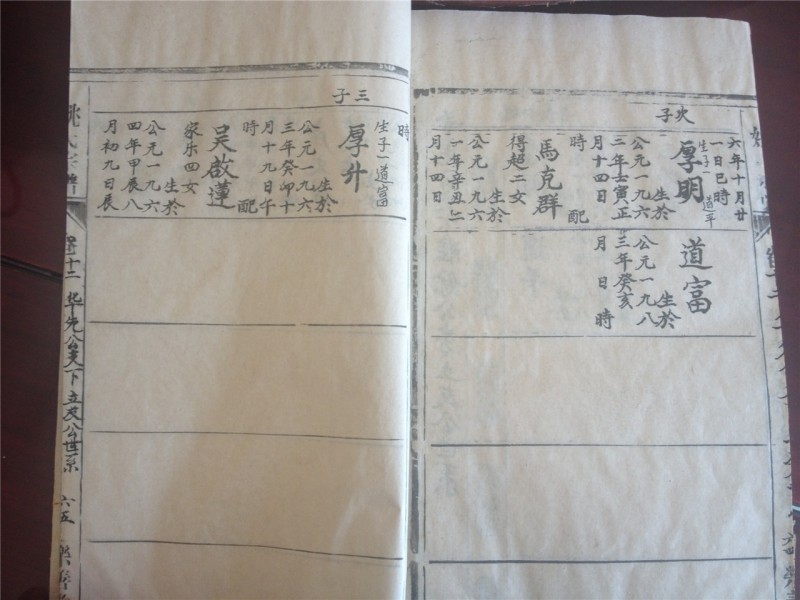 次子
六年十月廿
一日巳時
生子一道平
厚明
生於
公元一九六
二年壬寅正
月十四日
時
配
馬克群
得超二女
生於
公元一九六
一年辛丑二
月十四日
道富
生於
公元一九八
三年癸亥
月 日 時
三子
時
生子一道富
厚升
生於
公元一九六
三年癸卯十
月十九日午
時
配
吴啟蓮
家乐四女
生於
公元一九六
四年甲辰八
月初九日辰
卷十二 华先公支下立政公世系 六五